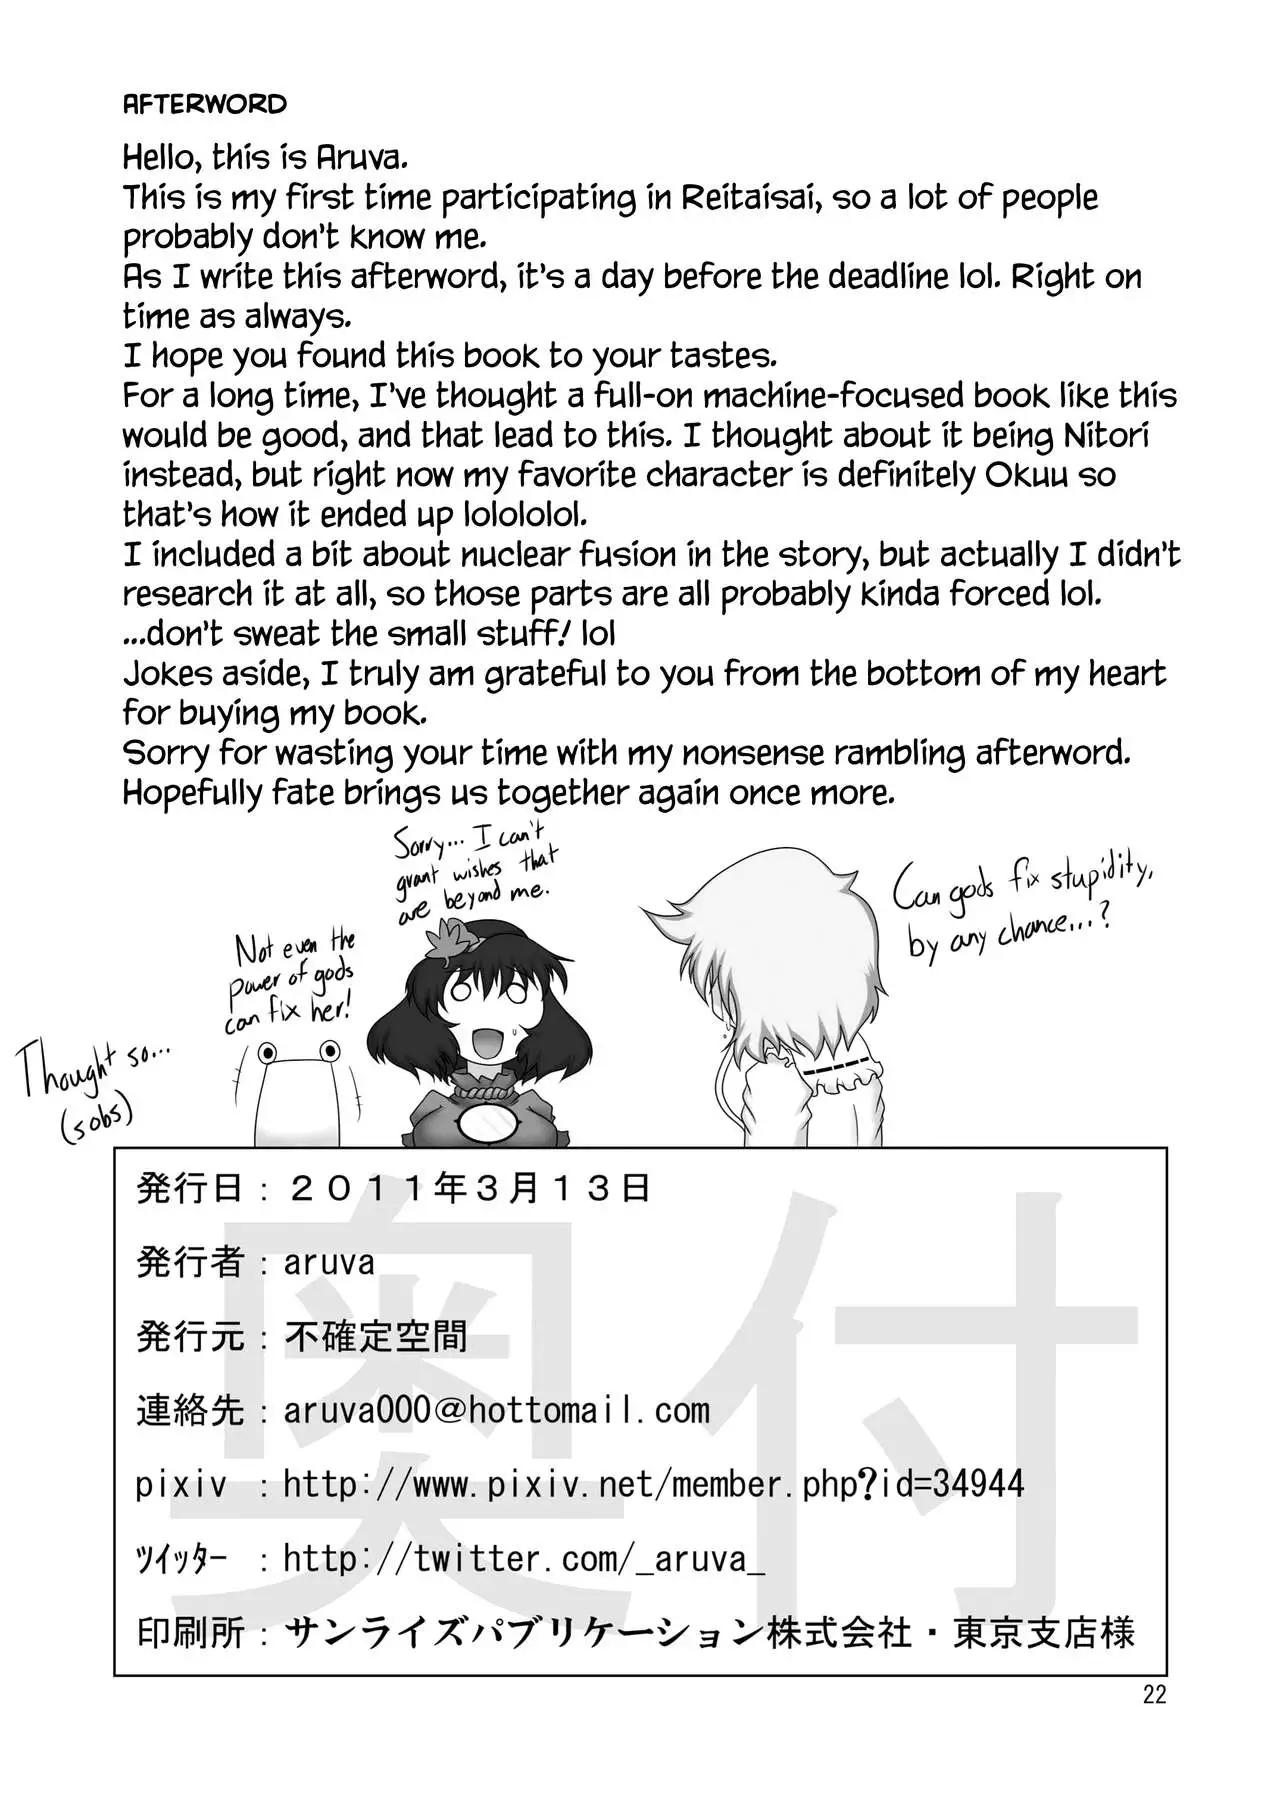 AFTERWORD
Hello, this is Aruva.
This is my first time participating in Reitaisai, so a lot of people
probably don't know me.
As I write this afterword, it's a day before the deadline lol. Right on
time as always.
I hope you found this book to your tastes.
For a long time, I've thought a full-on machine-focused book like this
would be good, and that lead to this. I thought about it being Nitori
instead, but right now my favorite character is definitely Okuu so
that's how it ended up lolololol.
I included a bit about nuclear fusion in the story, but actually I didn't
research it at all, so those parts are all probably kinda forced lol.
...don't sweat the small stuff! lol
Jokes aside, I truly am grateful to you from the bottom of my heart
for buying my book.
Sorry for wasting your time with my nonsense rambling afterword.
Hopefully fate brings us together again once more.
Can gods fix stupidity,
by any chance...?
Sorry... I can't
grant wishes that
are beyond me.
Not even the
power of gods
can fix her!
Thought so...
(sobs)
奥付
発行日：２０１１年３月１３日
発行者：aruva
発行元：不確定空間
連絡先：aruva000@hottomail.com
pixiv ：http://www.pixiv.net/member.php?id=34944
ﾂｲｯﾀｰ ：http://twitter.com/_aruva_
印刷所：サンライズパブリケーション株式会社・東京支店様
22